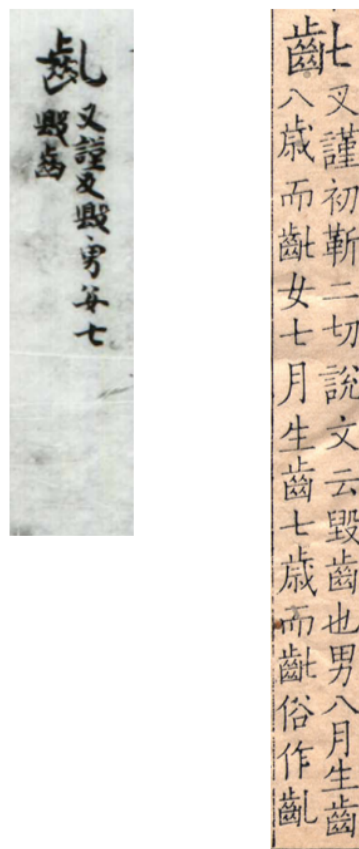 齓
叉謹反毀男年七
毀齒
齔
叉謹初靳二切說文云毀齒也男八月生齒
八歲而齔女七月生齒七歲而齔俗作齓